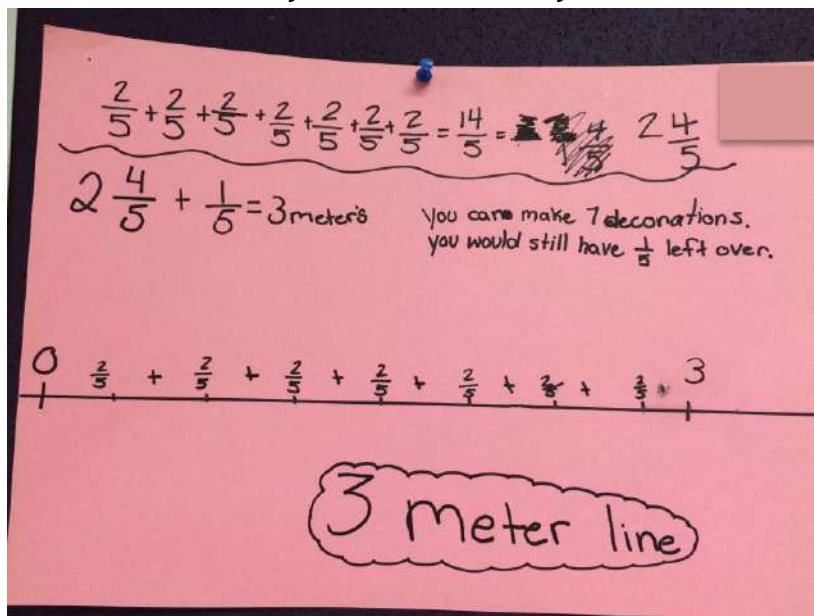 2/5 + 2/5 + 2/5 + 2/5 + 2/5 + 2/5 + 2/5 = 14/5 = 2 4/5
2 4/5 + 1/5 = 3 meter's
you can make 7 deconations.
you would still have 1/5 left over.
0 2/5 + 2/5 + 2/5 + 2/5 + 2/5 + 2/5 + 2/5 3
3 meter line